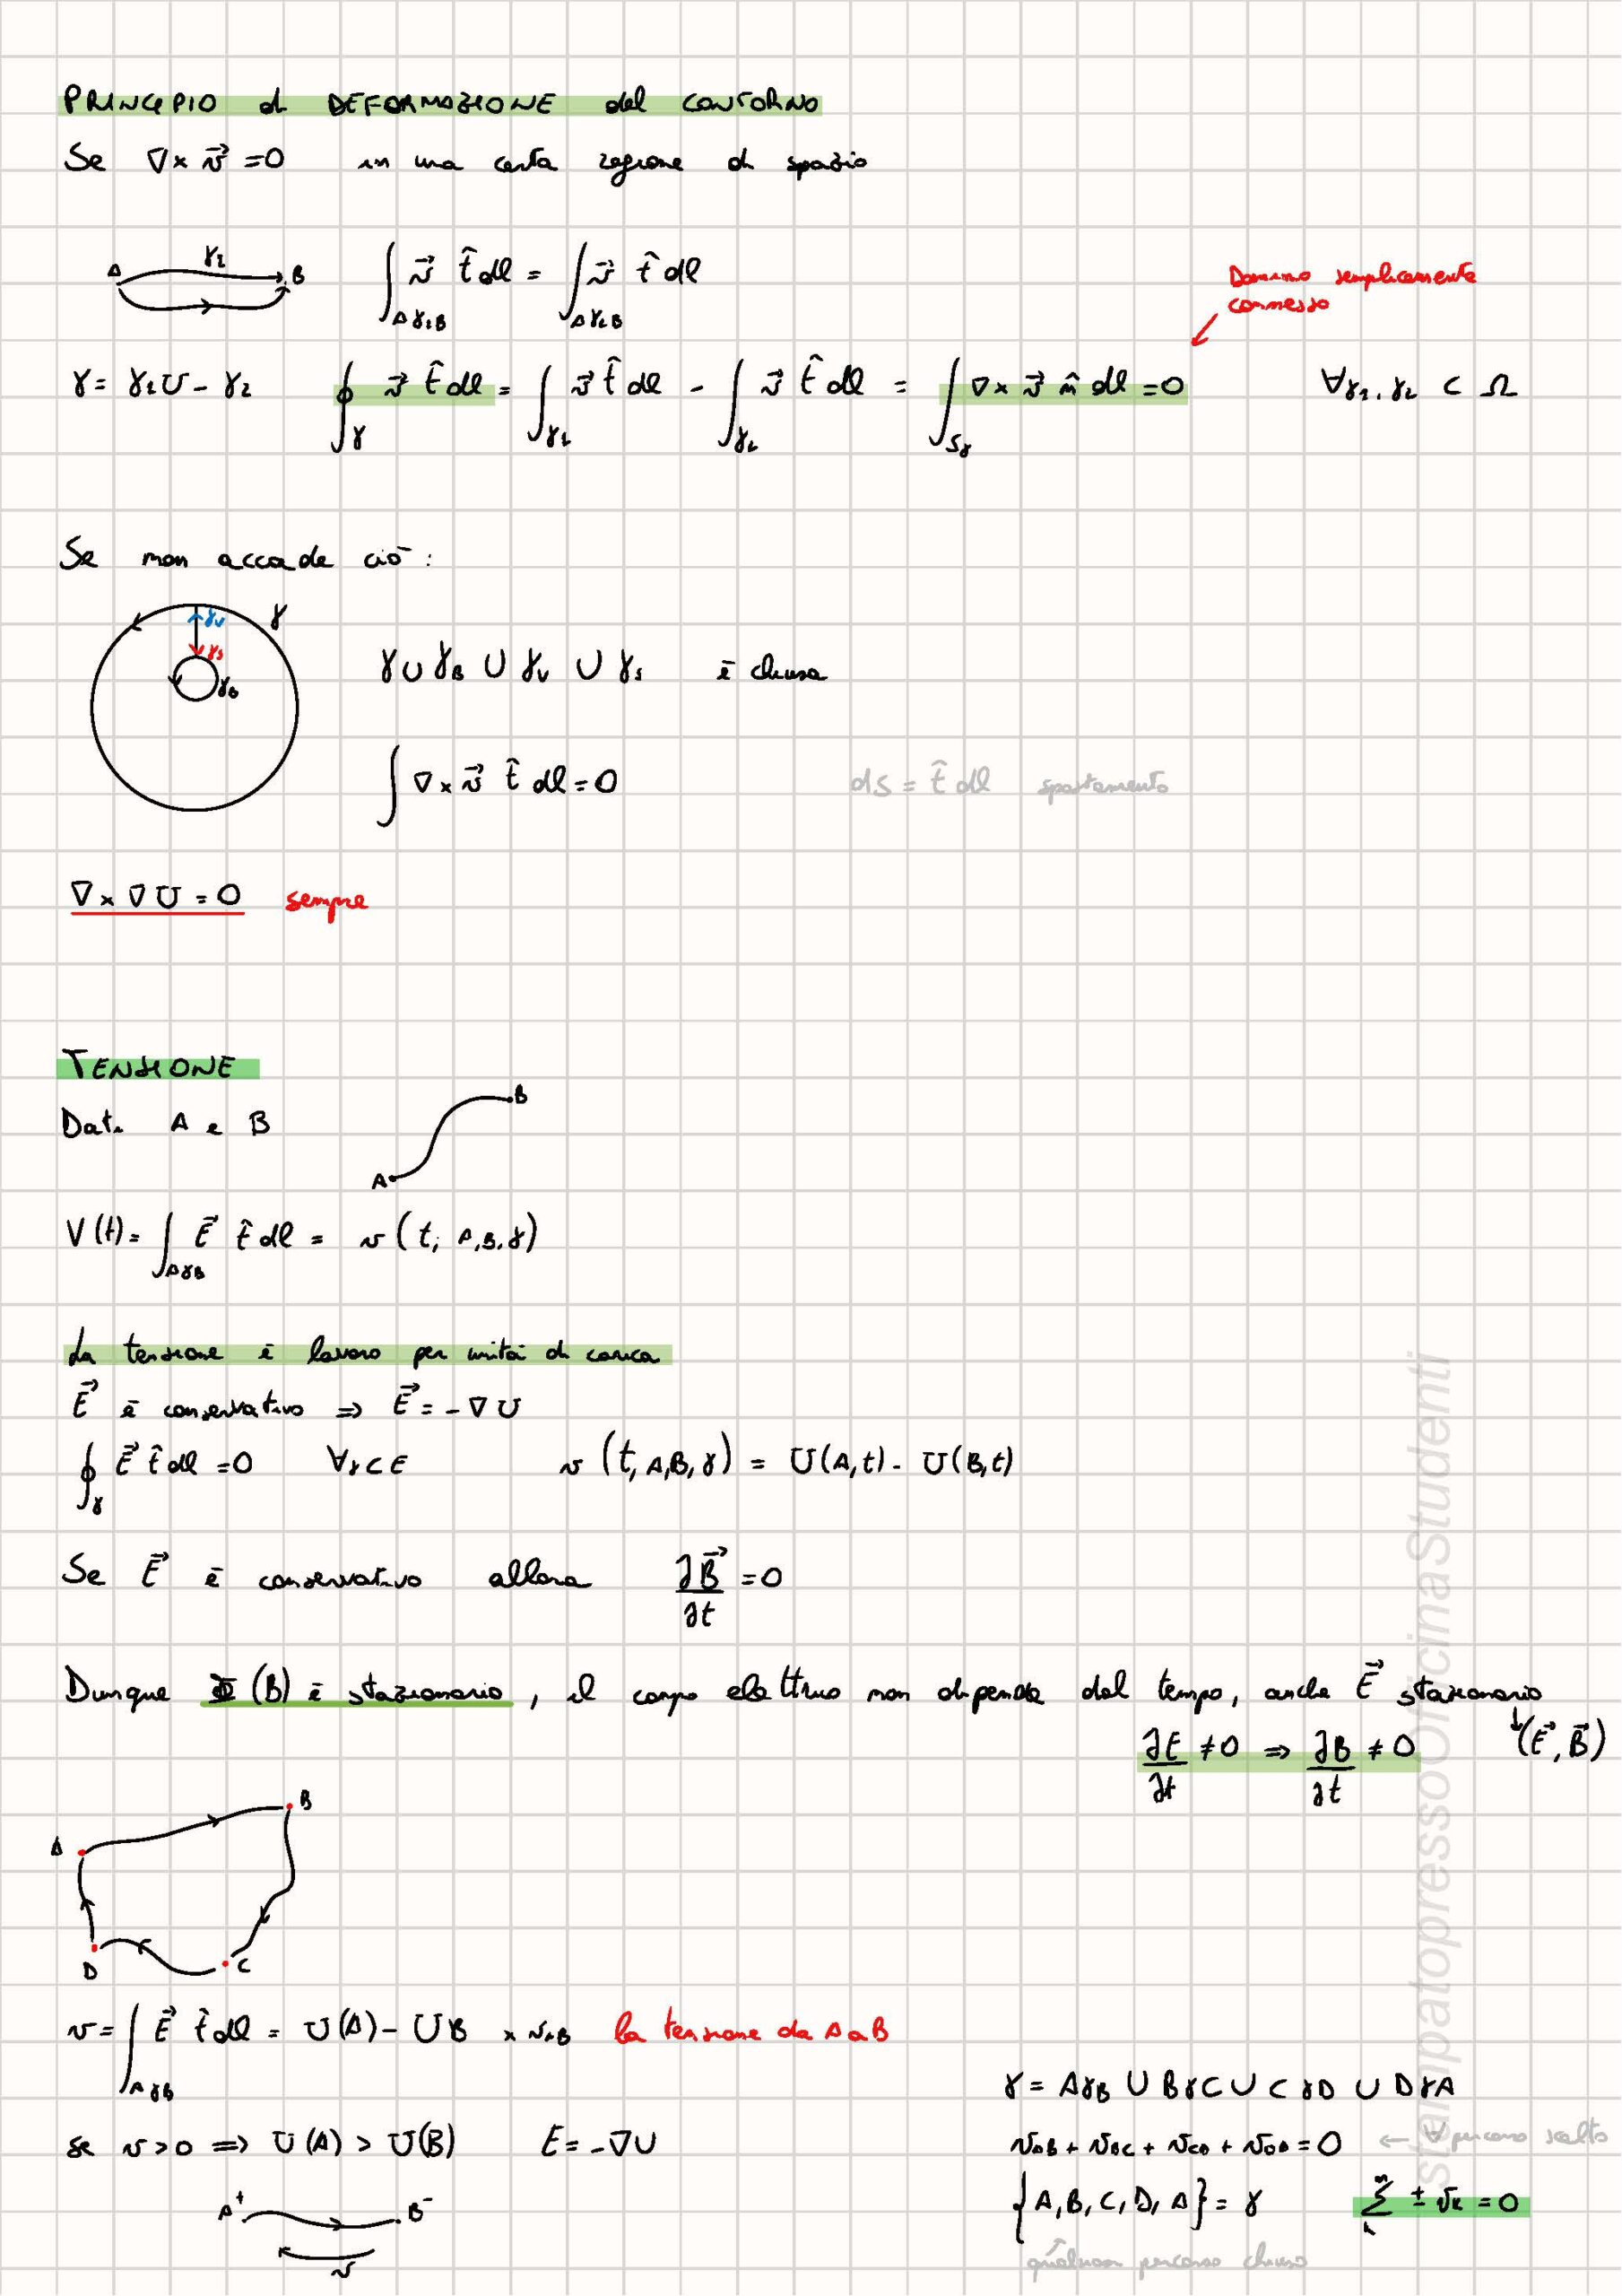 PRINCIPIO di DEFORMAZIONE del CONTORNO
Se ∇× v⃗ =0 in una certa regione di spazio
A γ₂ B
∫_{Aγ₁B} v⃗ t̂ dl = ∫_{Aγ₂B} v⃗ t̂ dl
Dominio semplicemente
connesso
γ = γ₁ ∪ - γ₂ ∮_γ v⃗ t̂ dl = ∫_{γ₁} v⃗ t̂ dl - ∫_{γ₂} v⃗ t̂ dl = ∫_{Sγ} ∇× v⃗ n̂ dl =0 ∀γ₁,γ₂ ⊂ Ω
Se non accade ciò :
γ γᵥ γₛ γ₀
γ ∪ γ_B ∪ γᵥ ∪ γₛ è chiusa
∫ ∇× v⃗ t̂ dl = 0 ds = t̂ dl spostamento
∇×∇U = 0 sempre
TENSIONE
Dati A e B
A B
V(t) = ∫_{AγB} E⃗ t̂ dl = v(t; A,B,γ)
La tensione è lavoro per unità di carica
E⃗ è conservativo ⇒ E⃗ = -∇U
∮_γ E⃗ t̂ dl =0 ∀γ⊂E v(t, A,B, γ) = U(A,t) - U(B,t)
Se E⃗ è conservativo allora ∂B⃗/∂t =0
Dunque Φ(B) è stazionario, il campo elettrico non dipende dal tempo, anche E⃗ stazionario
∂E/∂t ≠0 ⇒ ∂B/∂t ≠0 ↓(E⃗,B⃗)
A B
D C
v = ∫_{AγB} E⃗ t̂ dl = U(A) - UB × v_{AB} la tensione da A a B
γ = AγB ∪ BγC ∪ CγD ∪ DγA
se v>0 ⇒ U(A) > U(B) E = -∇U
v_{AB} + v_{BC} + v_{CD} + v_{DA} = 0 ← ∀ percorso scelto
{A,B,C,D,A} = γ Σ ± vₖ = 0
A⁺ B⁻
v
qualsiasi percorso chiuso
stampatopressoOfficinaStudenti